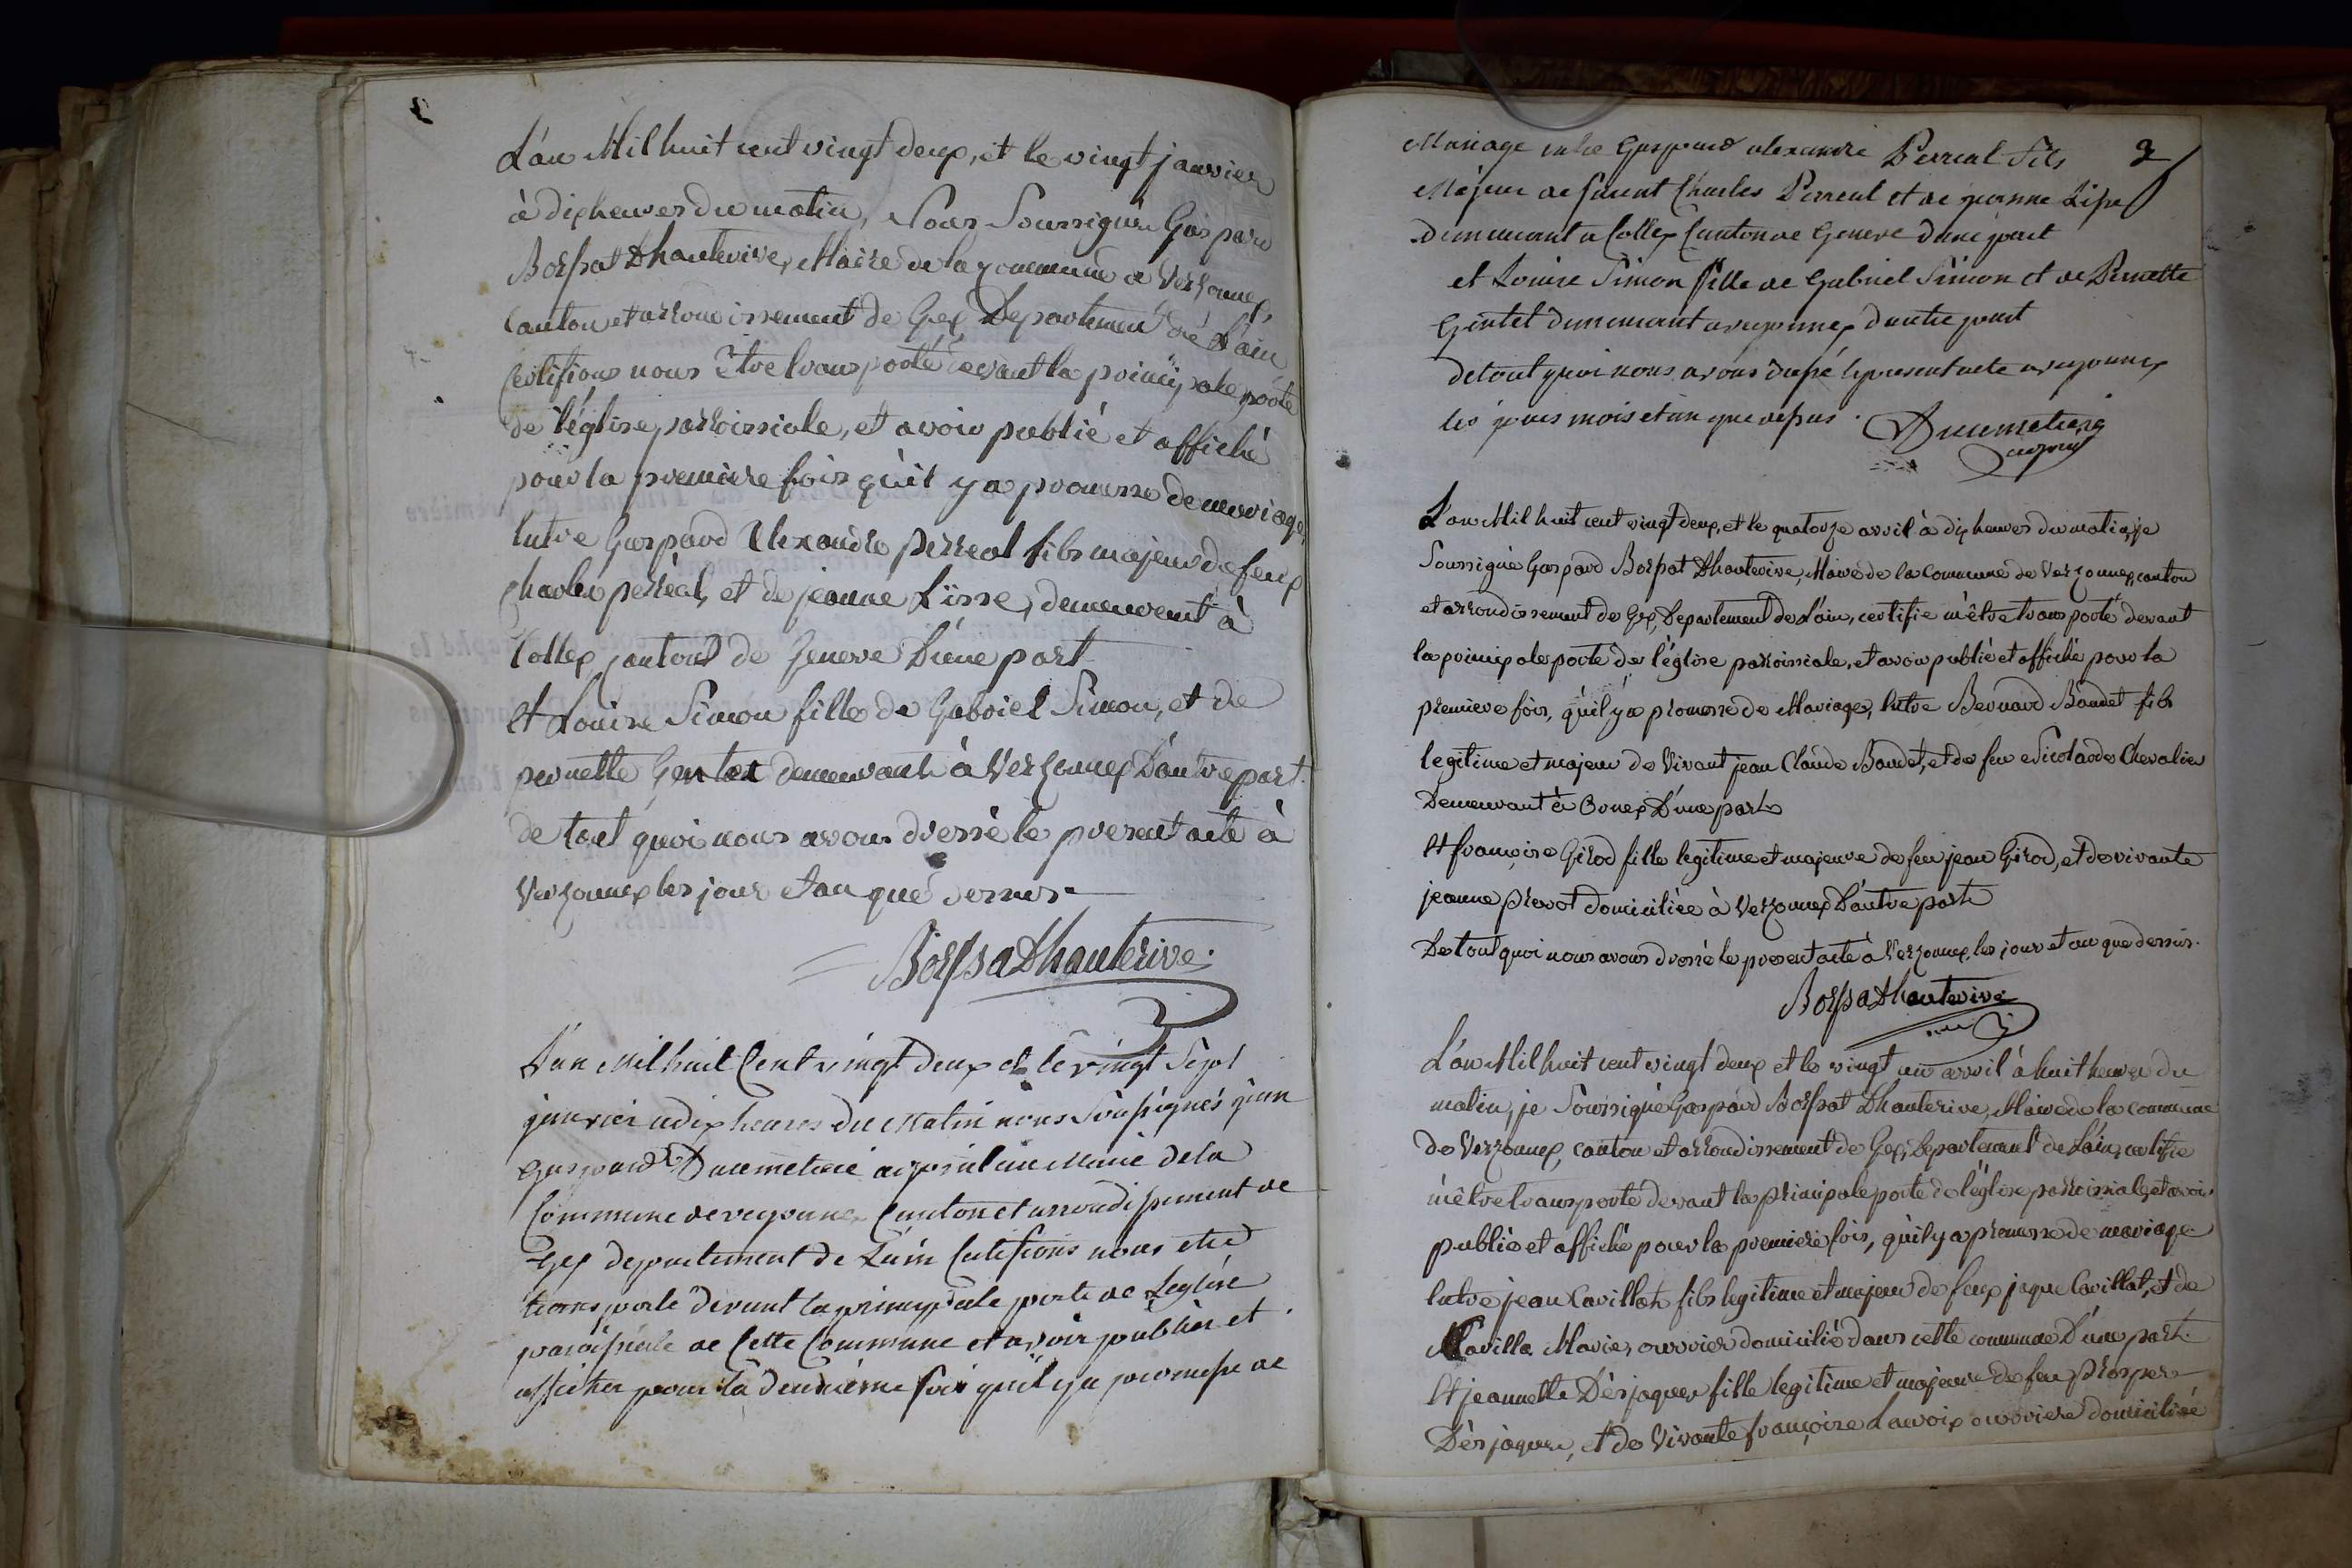 L'an Mil huit cent vingt deux, et le vingt janvier
à dix heures du matin, Nous Soussignée Gaspard
Borssat Dhauterive, Maire de la commune de Verzonnex,
canton et arrondissement de Gex Departement de L'ain
Certifions nous être transporté devant la principale porte
de l'église parroissiale, et avoir publié et affiché
pour la premiere fois qu'il y a promesse de mariage
Entre Gaspard Alexandre perreal fils majeur de feux
Charles perréal, et de jeanne Lisse, demeurent à
Collex canton de Geneve D'une part
Et Louise Simon fille de Gabriel Simon, et de
pernette Gentet demeurante à Verzonnex D'autre part.
de tout quoi nous avons dressé le present acte à
Verzonnex les jour et an que dessus
Borssat Dhauterive.
L'an Mil huit Cent vingt deux et le vingt Sept
janvier a dix heures du Matin nous Soussignés jean
Gaspard Ducimetiere adjoint au Maire de la
Commune de vezonnex Canton et arrondissement de
Gex departement de L'ain Certifions nous etre
transporté devant la principale porte de Leglise
paroissiale de Cette Commune et avoir publier et
afficher pour la deuxieme fois qu'il y a promesse de
Mariage entre Gaspard alexandre Perreal fils 3
Majeur de feu Charles Perreal et de jeanne Lisse
demeurant a Collex Canton de Geneve d'une part
et Louise Simon fille de Gabriel Simon et de Pernette
Gentet demeurant a vezonnex d'autre part
de tout quoi nous avons dressé le present acte a vezonnex
les jours mois et an que desus. Ducimetiere
adjoint
L'an Mil huit cent vingt deux, et le quatorze avril à dix heures du matin, je
Soussigné Gaspard Borssat Dhauterive, Maire de la Commune de Verzonnex, canton
et arrondissement de Gex, Departement de L'ain, certifie m'être transporté devant
la principale porte de l'église parroissiale, et avoir publié et affiché pour la
premiere fois, qu'il y a promesse de Mariage, Entre Bernard Baudet fils
legitime et majeur de Vivant jean Claude Baudet, et de feu Nicolarde Chevalier
Demeurant à Ornex D'une part
Et françoise Girod fille legitime et majeure de feu jean Girod, et de vivante
jeanne prevot domiciliée à Verzonnex D'autre part
De tout quoi nous avons dressé le present acte à Verzonnex, les jour et an que dessus.
Borssat Dhauterive
L'an Mil huit cent vingt deux et le vingt un avril à huit heures du
matin, je Soussigné Gaspard Borssat Dhauterive, Maire de la Commune
de Verzonnex, canton et arrondissement de Gex, Departement de L'ain, certifie
m'être transporté devant la principale porte de l'église parroissiale, et avoir
publié et affiché pour la premiere fois, qu'il y a promesse de mariage
Entre jean Cavillat fils legitime et majeur de feux jaque Cavillat, et de
Marie, ouvrier domicilié dans cette commune D'une part.
Et jeannette Desjaques fille legitime et majeure de feu prosper
Desjaques, et de Vivante françoise Lavoix ouvriere domiciliée